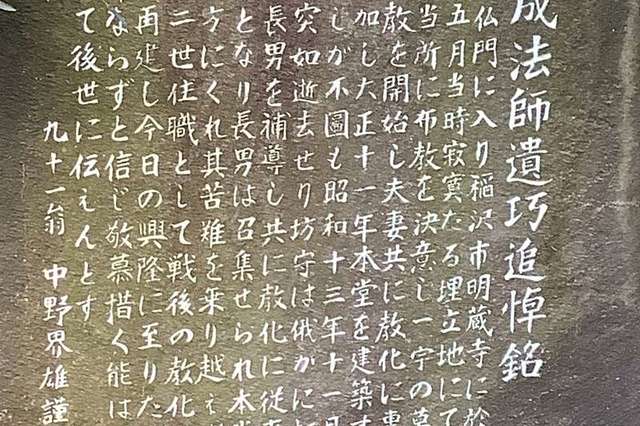 成法師遺巧追悼銘
仏門に入り稲沢市明蔵寺に於
五月当時寂寞たる埋立地にて
当所に布教を決意し一宇の草
教を開始し夫妻共に教化に専
加し大正十一年本堂を建築す
しが不圖も昭和十三年十一月
突如逝去せり坊守は俄かに
長男を補導し共に教化に従事
となり長男は召集せられ本堂
方にくれ其苦難を乗り越え
二世住職として戦後の教化
再建し今日の興隆に至りた
ならずと信じ敬慕措く能は
て後世に伝えんとす
九十一翁 中野界雄 謹